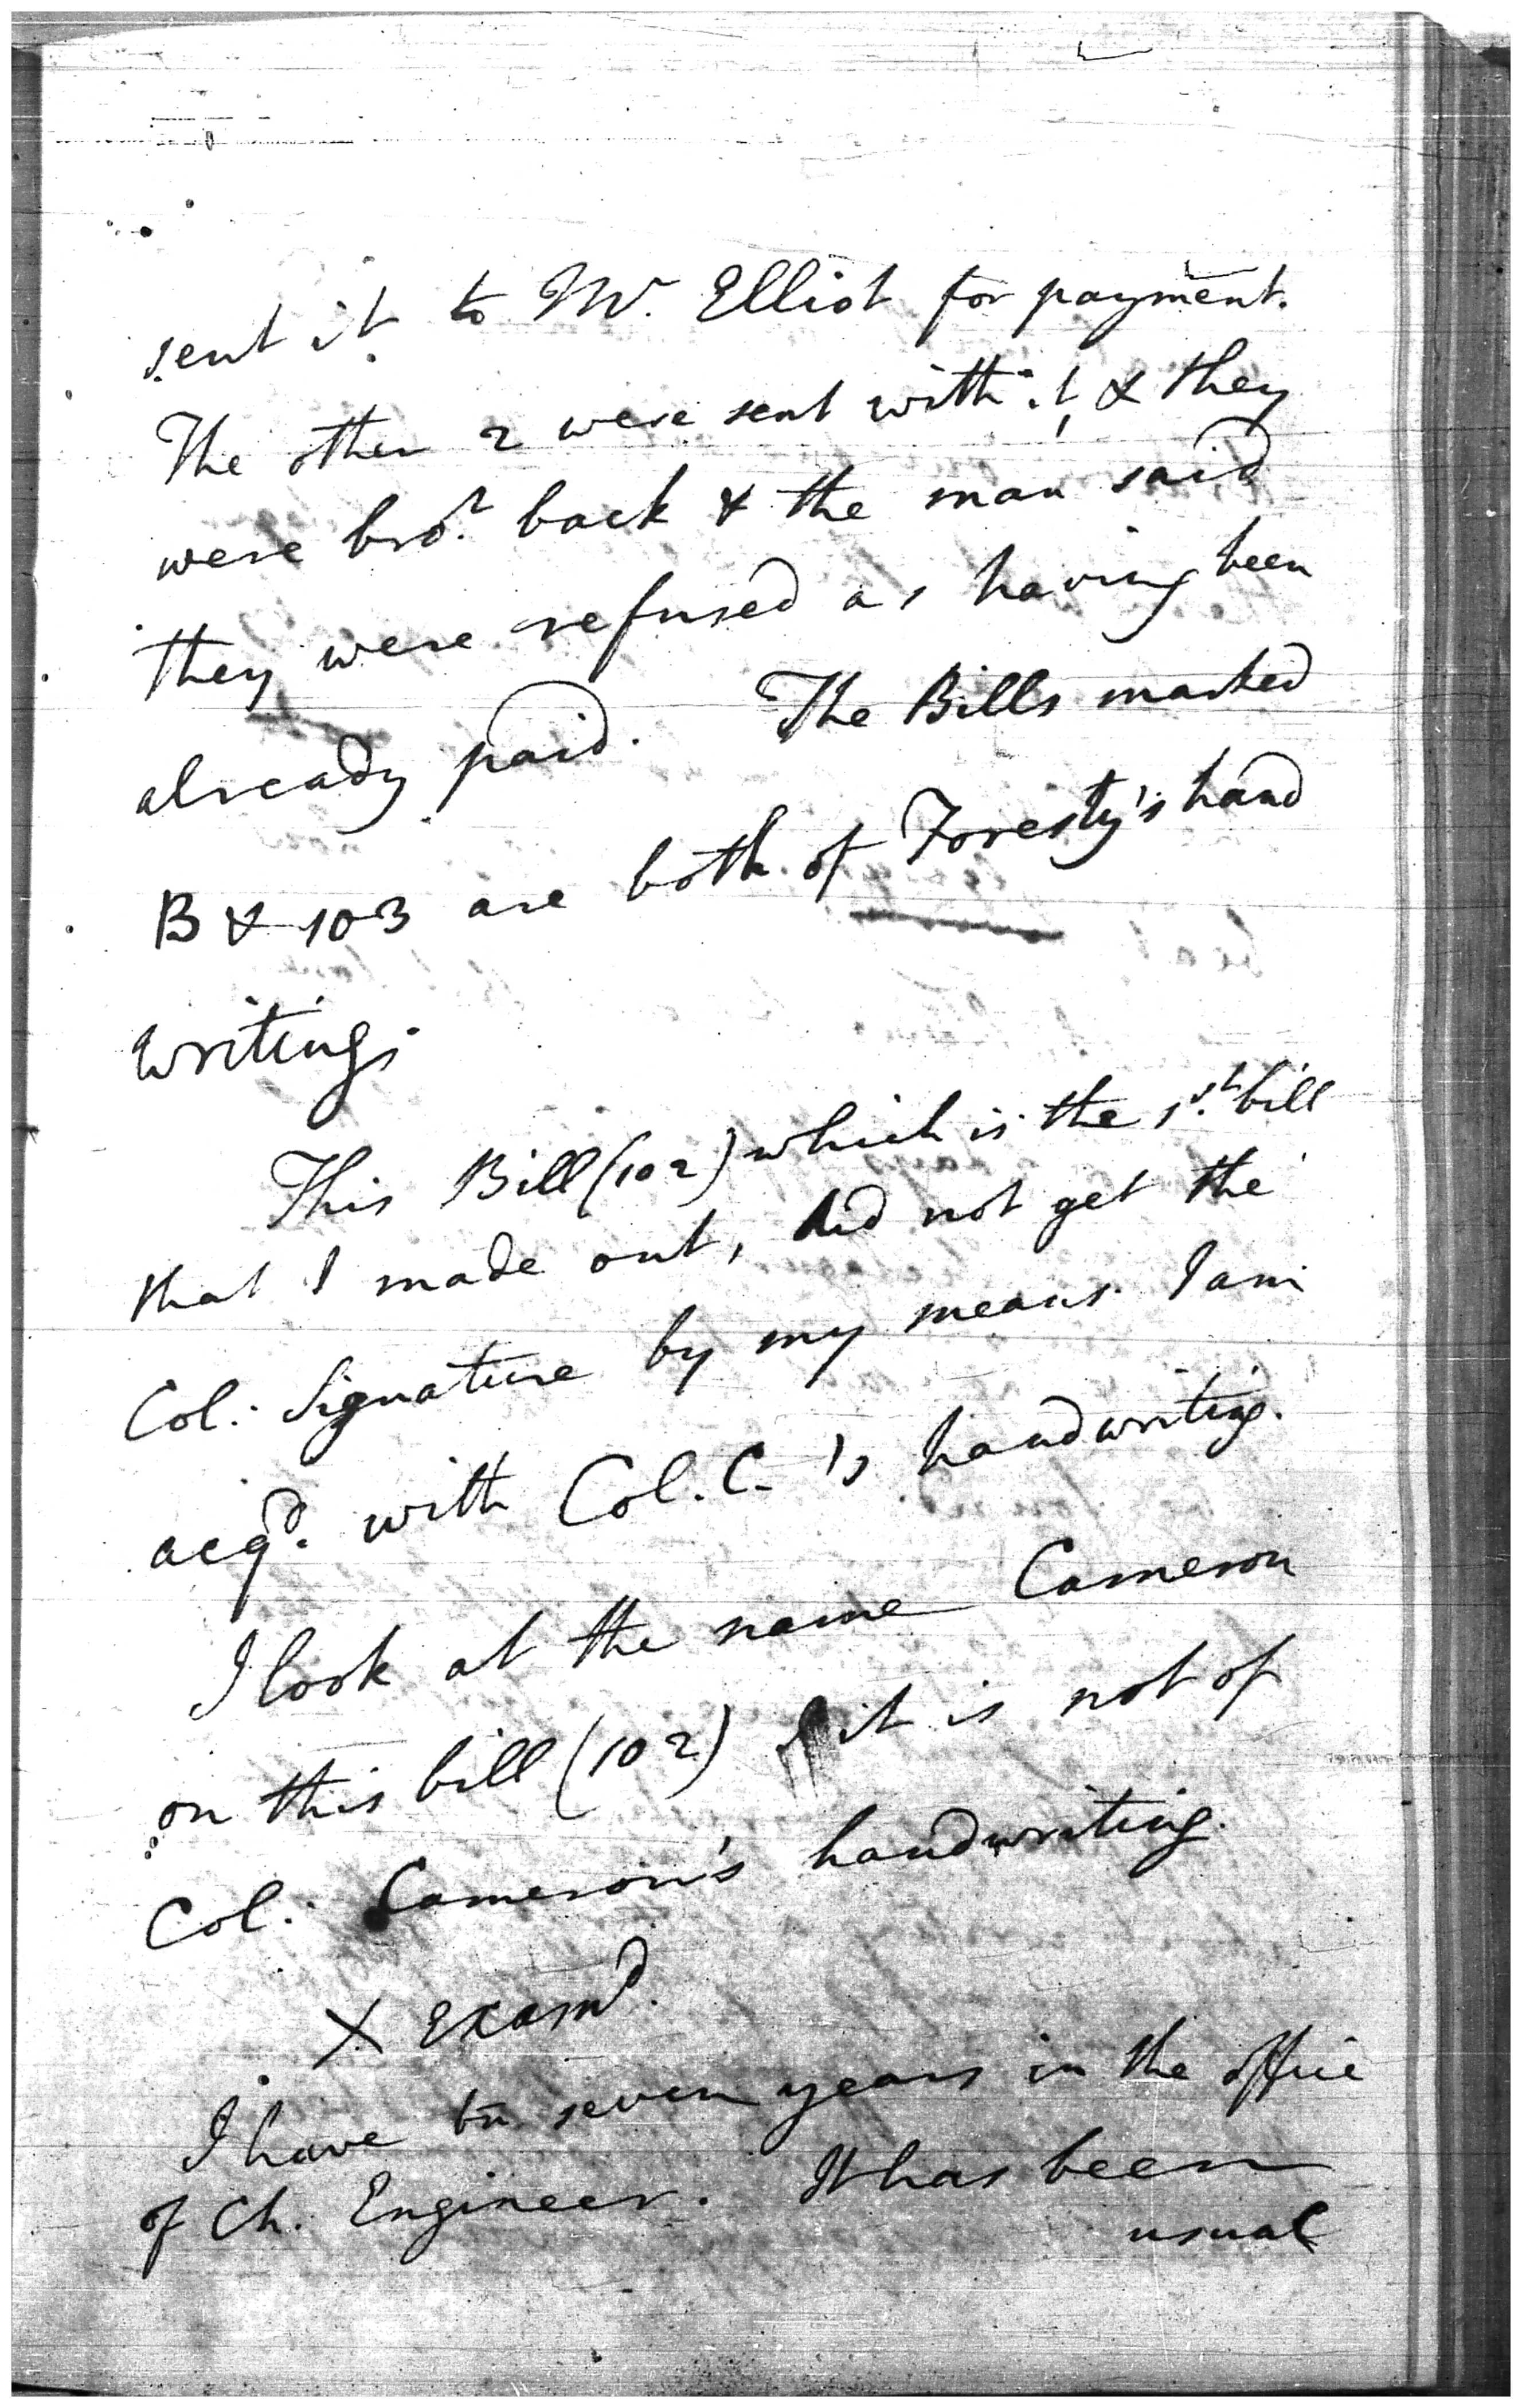 sent it to Mr. Elliot for payment.
The other 2 were sent with it & they
were bro.t back & the man said
they were refused as having been
already paid. The Bills marked
B & 103 are both of Foresty's hand
writing.
This Bill (102) which is the 1st. bill
that I made out, did not get the
Col: Signature by my means. I am
acqd. with Col. C-'s handwriting.
I look at the name Cameron
on this bill (102) it is not of
Col: Cameron's handwriting.
X Examd.
I have bn seven years in the office
of Ch. Engineer. It has been
usual